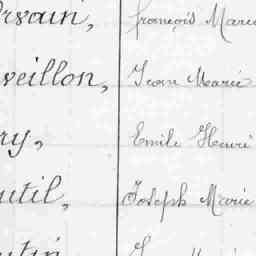 rvain, françois Marie
veillon, Jean Marie
ry, Emile Henri
util, Joseph Marie
utin